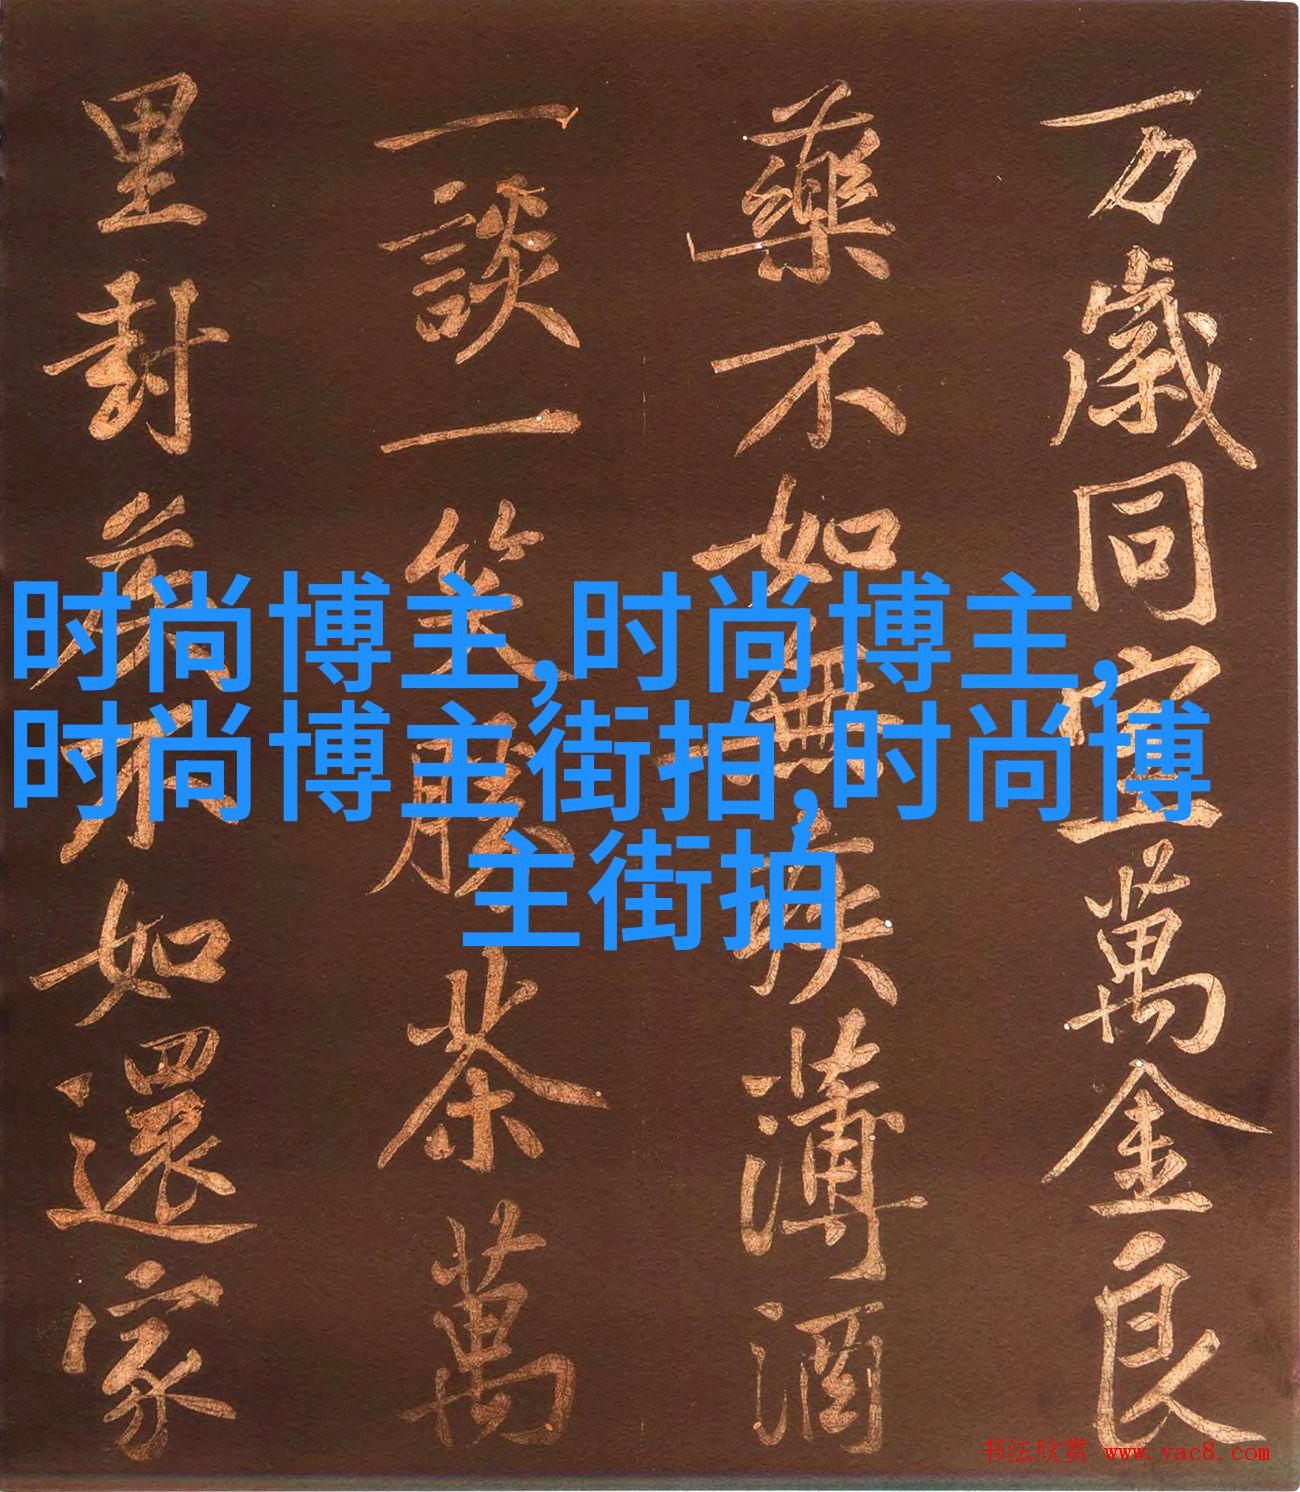 万歲同宜萬金良
藥不如無疾薄酒
一談一笑勝茶萬
里封不如還家
时尚博主,时尚博主,
时尚博主街拍,时尚博
主街拍
书法欣赏 www.yac8.com